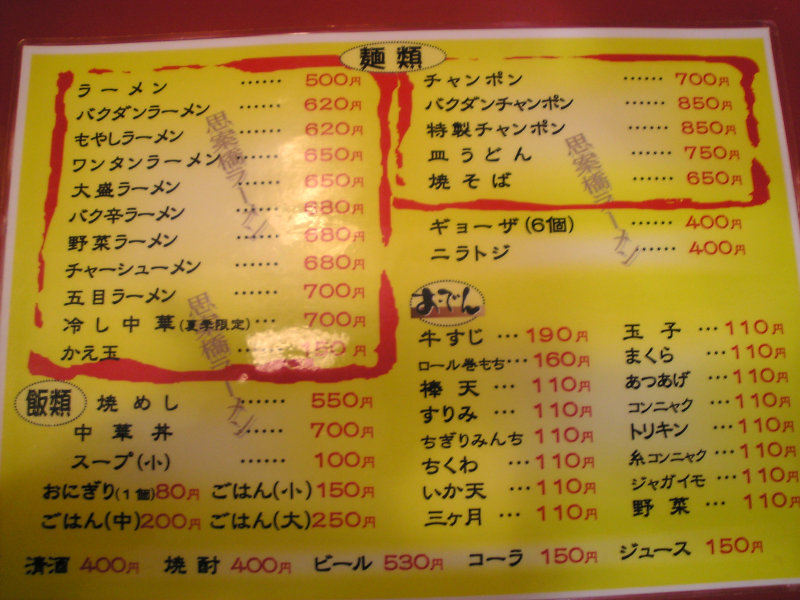 麺類
ラーメン …… 500円
バクダンラーメン …… 620円
もやしラーメン …… 620円
ワンタンラーメン …… 650円
大盛ラーメン …… 650円
バク辛ラーメン …… 680円
野菜ラーメン …… 680円
チャーシューメン …… 680円
五目ラーメン …… 700円
冷し中華(夏季限定) … 700円
かえ玉 …… 150円
思案橋ラーメン
思案橋ラーメン
チャンポン …… 700円
バクダンチャンポン …… 850円
特製チャンポン …… 850円
皿うどん …… 750円
焼そば …… 650円
思案橋ラーメン
ギョーザ(6個) …… 400円
ニラトジ …… 400円
飯類
焼めし …… 550円
中華丼 …… 700円
スープ(小) …… 100円
おにぎり(1個)80円 ごはん(小)150円
ごはん(中)200円 ごはん(大)250円
おでん
牛すじ … 190円
ロール巻もち … 160円
棒天 … 110円
すりみ … 110円
ちぎりみんち 110円
ちくわ … 110円
いか天 … 110円
三ヶ月 … 110円
玉子 … 110円
まくら … 110円
あつあげ … 110円
コンニャク … 110円
トリキン … 110円
糸コンニャク … 110円
ジャガイモ … 110円
野菜 … 110円
清酒 400円 焼酎 400円 ビール 530円 コーラ 150円 ジュース 150円